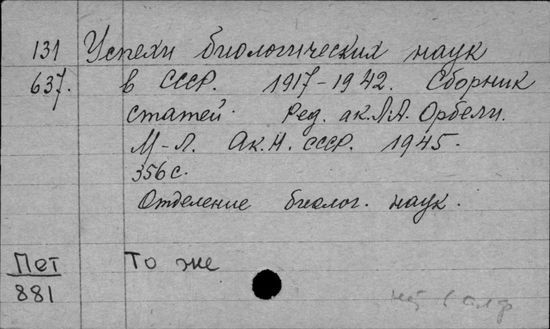 131 Успехи биологических наук
637. в СССР. 1917-1942. Сборник
статей. Ред. ак. Л.А. Орбели.
М-Л. Ак. Н. СССР. 1945.
356 с.
Отделение биолог. наук.
Пет То же
881